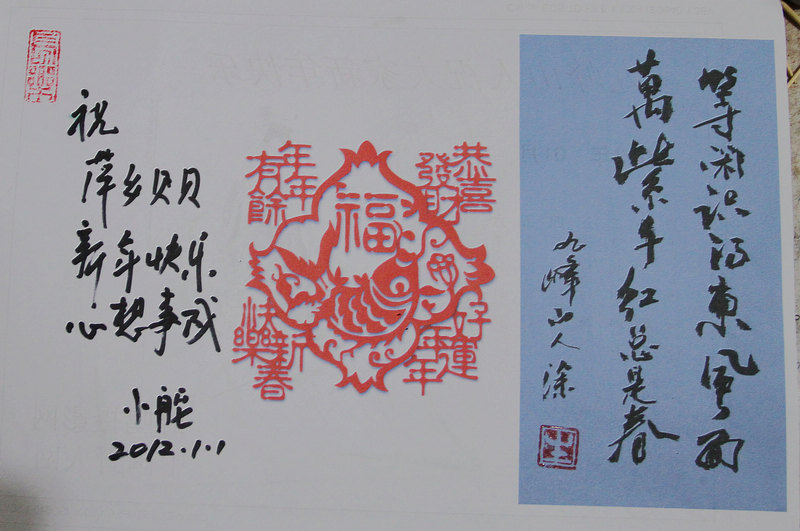 祝
萍乡贝贝
新年快乐
心想事成
小舵
2012.1.1
恭喜
發財
年年
有餘
福
好運
年年
快樂
新春
等闲识得东风面
萬紫千红总是春
九峰山人 涂